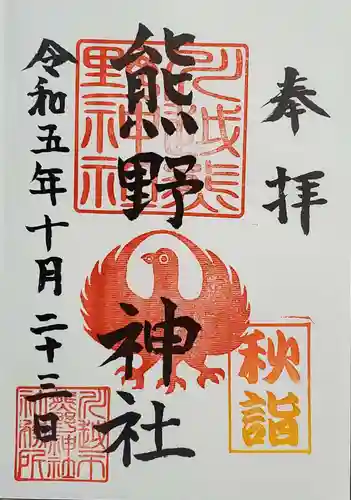 奉拝
熊野神社
令和五年十月二十三日
秋詣
川越熊野神社
川越市熊野神社社務所